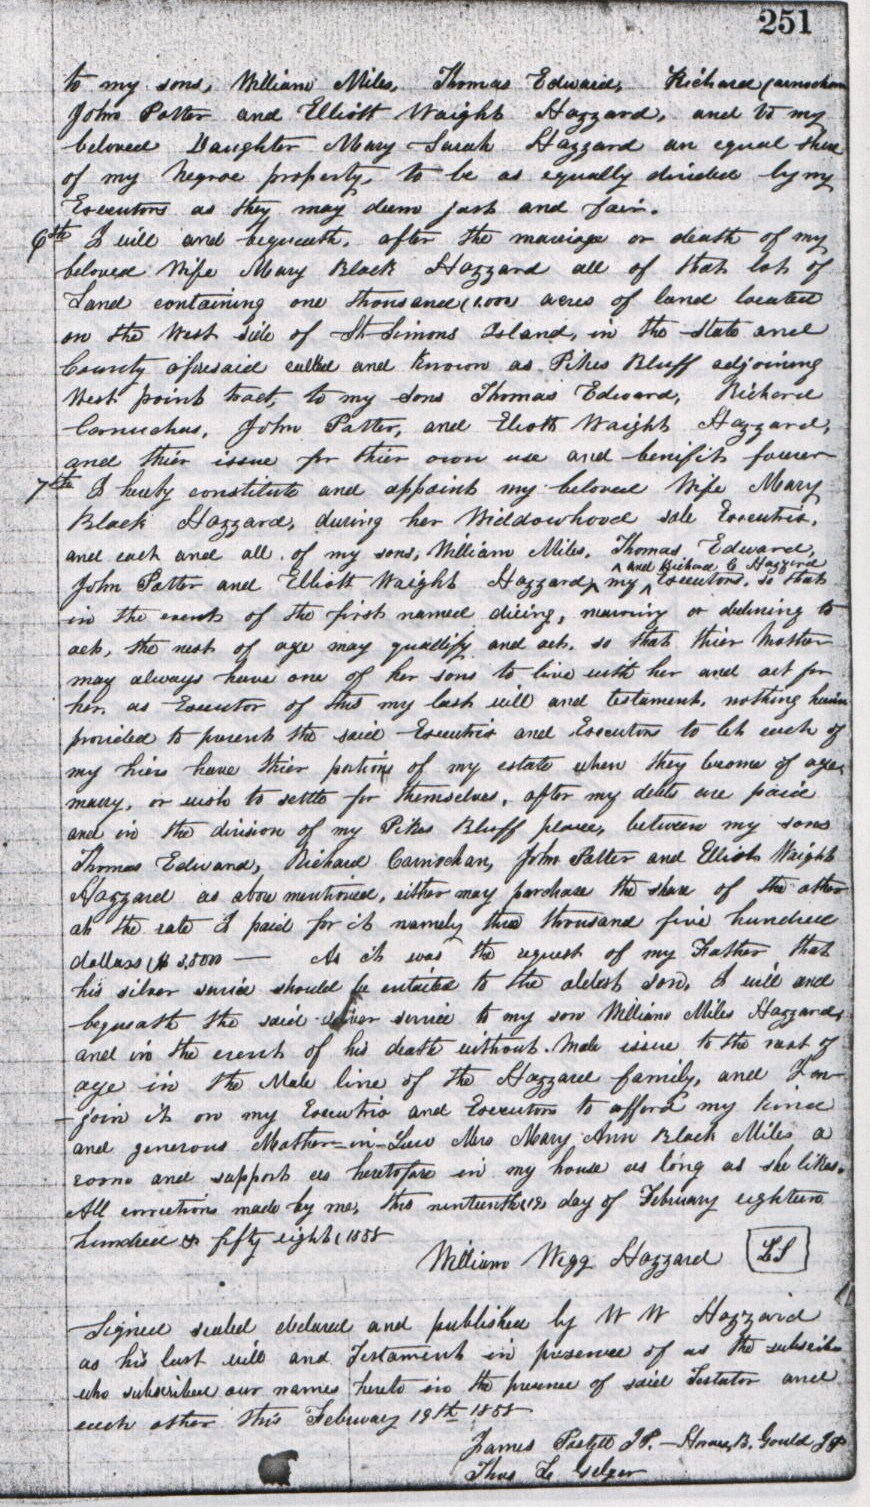 251
to my sons, William Miles, Thomas Edward, Richard Carnochan
John Potter and Elliott Waight Hazzard, and to my
beloved Daughter Mary Sarah Hazzard an equal share
of my Negroe property, to be as equally divided by my
Executors as they may deem just and fair.
6th I will and bequeath, after the marriage or death of my
beloved Wife Mary Black Hazzard all of that lot of
Land containing one thousand (1,000) acres of land located
on the West side of St Simons Island, in the State and
County aforesaid called and known as Pikes Bluff adjoining
West point tract, to my sons Thomas Edward, Richard
Carnochan, John Potter, and Eliott Waight Hazzard,
and thier issue for thier own use and benifit forever
7th I hereby constitute and appoint my beloved Wife Mary
Black Hazzard, during her Widdowhood sole Executrix,
and each and all of my sons, William Miles, Thomas Edward,
and Richard C Hazzard
John Potter and Elliott Waight Hazzard, my Executors, so that
in the event of the first named dieing, marrying or declining to
act, the next of age may quallify and act, so that thier Mother
may always have one of her sons to live with her and act for
her, as Executor of this my last will and testament, nothing herein
provided to prevent the said Executrix and Executors to let each of
my hiers have thier portions of my estate when they become of age,
marry, or wish to settle for themselves, after my debts are paid
and in the division of my Pikes Bluff place, between my sons
Thomas Edward, Richard Carnochan, John Potter and Elliott Waight
Hazzard as above mentioned, either may purchase the share of the other
at the rate I paid for it namely three thousand five hundred
dollars $3,500 — As it was the request of my Father that
his silver service should be entailed to the oldest son, I will and
bequeath the said silver service to my son William Miles Hazzard,
and in the event of his death without Male issue to the next of
age in the Male line of the Hazzard family, and I en-
-join it on my Executrix and Executors to afford my kind
and generous Mother-in-Law Mrs Mary Ann Black Miles a
room and support as heretofore in my house as long as she likes.
All corrections made by me, this ninteenth (19) day of February eighteen
hundred & fifty eight, 1858
William Wigg Hazzard LS
Signed sealed declared and published by W W Hazzard
as his last will and Testament in presence of us the subscribers
who subscribed our names hereto in the presence of said Testator and
each other this February 19th 1858
James Postell J.P. — Horace B. Gould JP
Thos F Gelzer